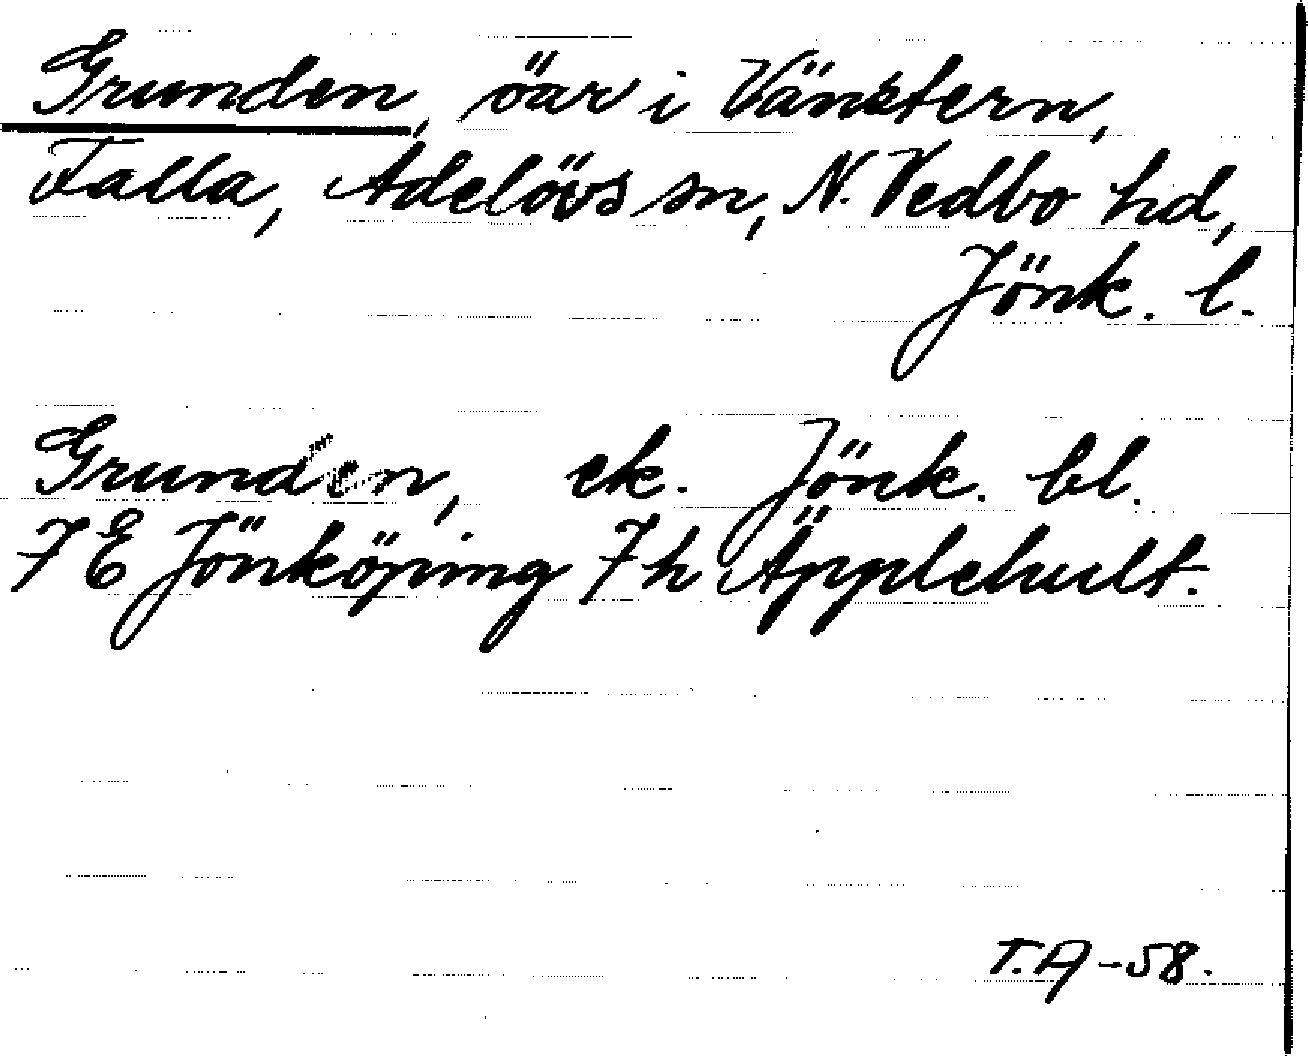 Grunden, öar i Vänstern,
Falla, Adelövs sn, N. Vedbo hd,
Jönk. l.
Grunden, ek. Jönk. bl.
7 E Jönköping 7 h Äpplehult.
T.A-58.